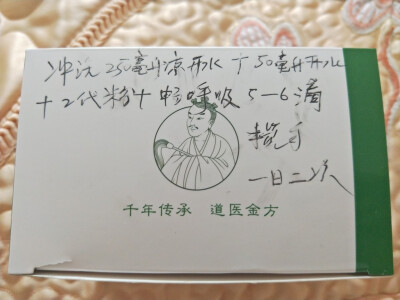 冲洗250毫升凉开水＋50毫升开水
＋2代粉＋畅呼吸5—6滴
一日二次
千年传承 道医金方